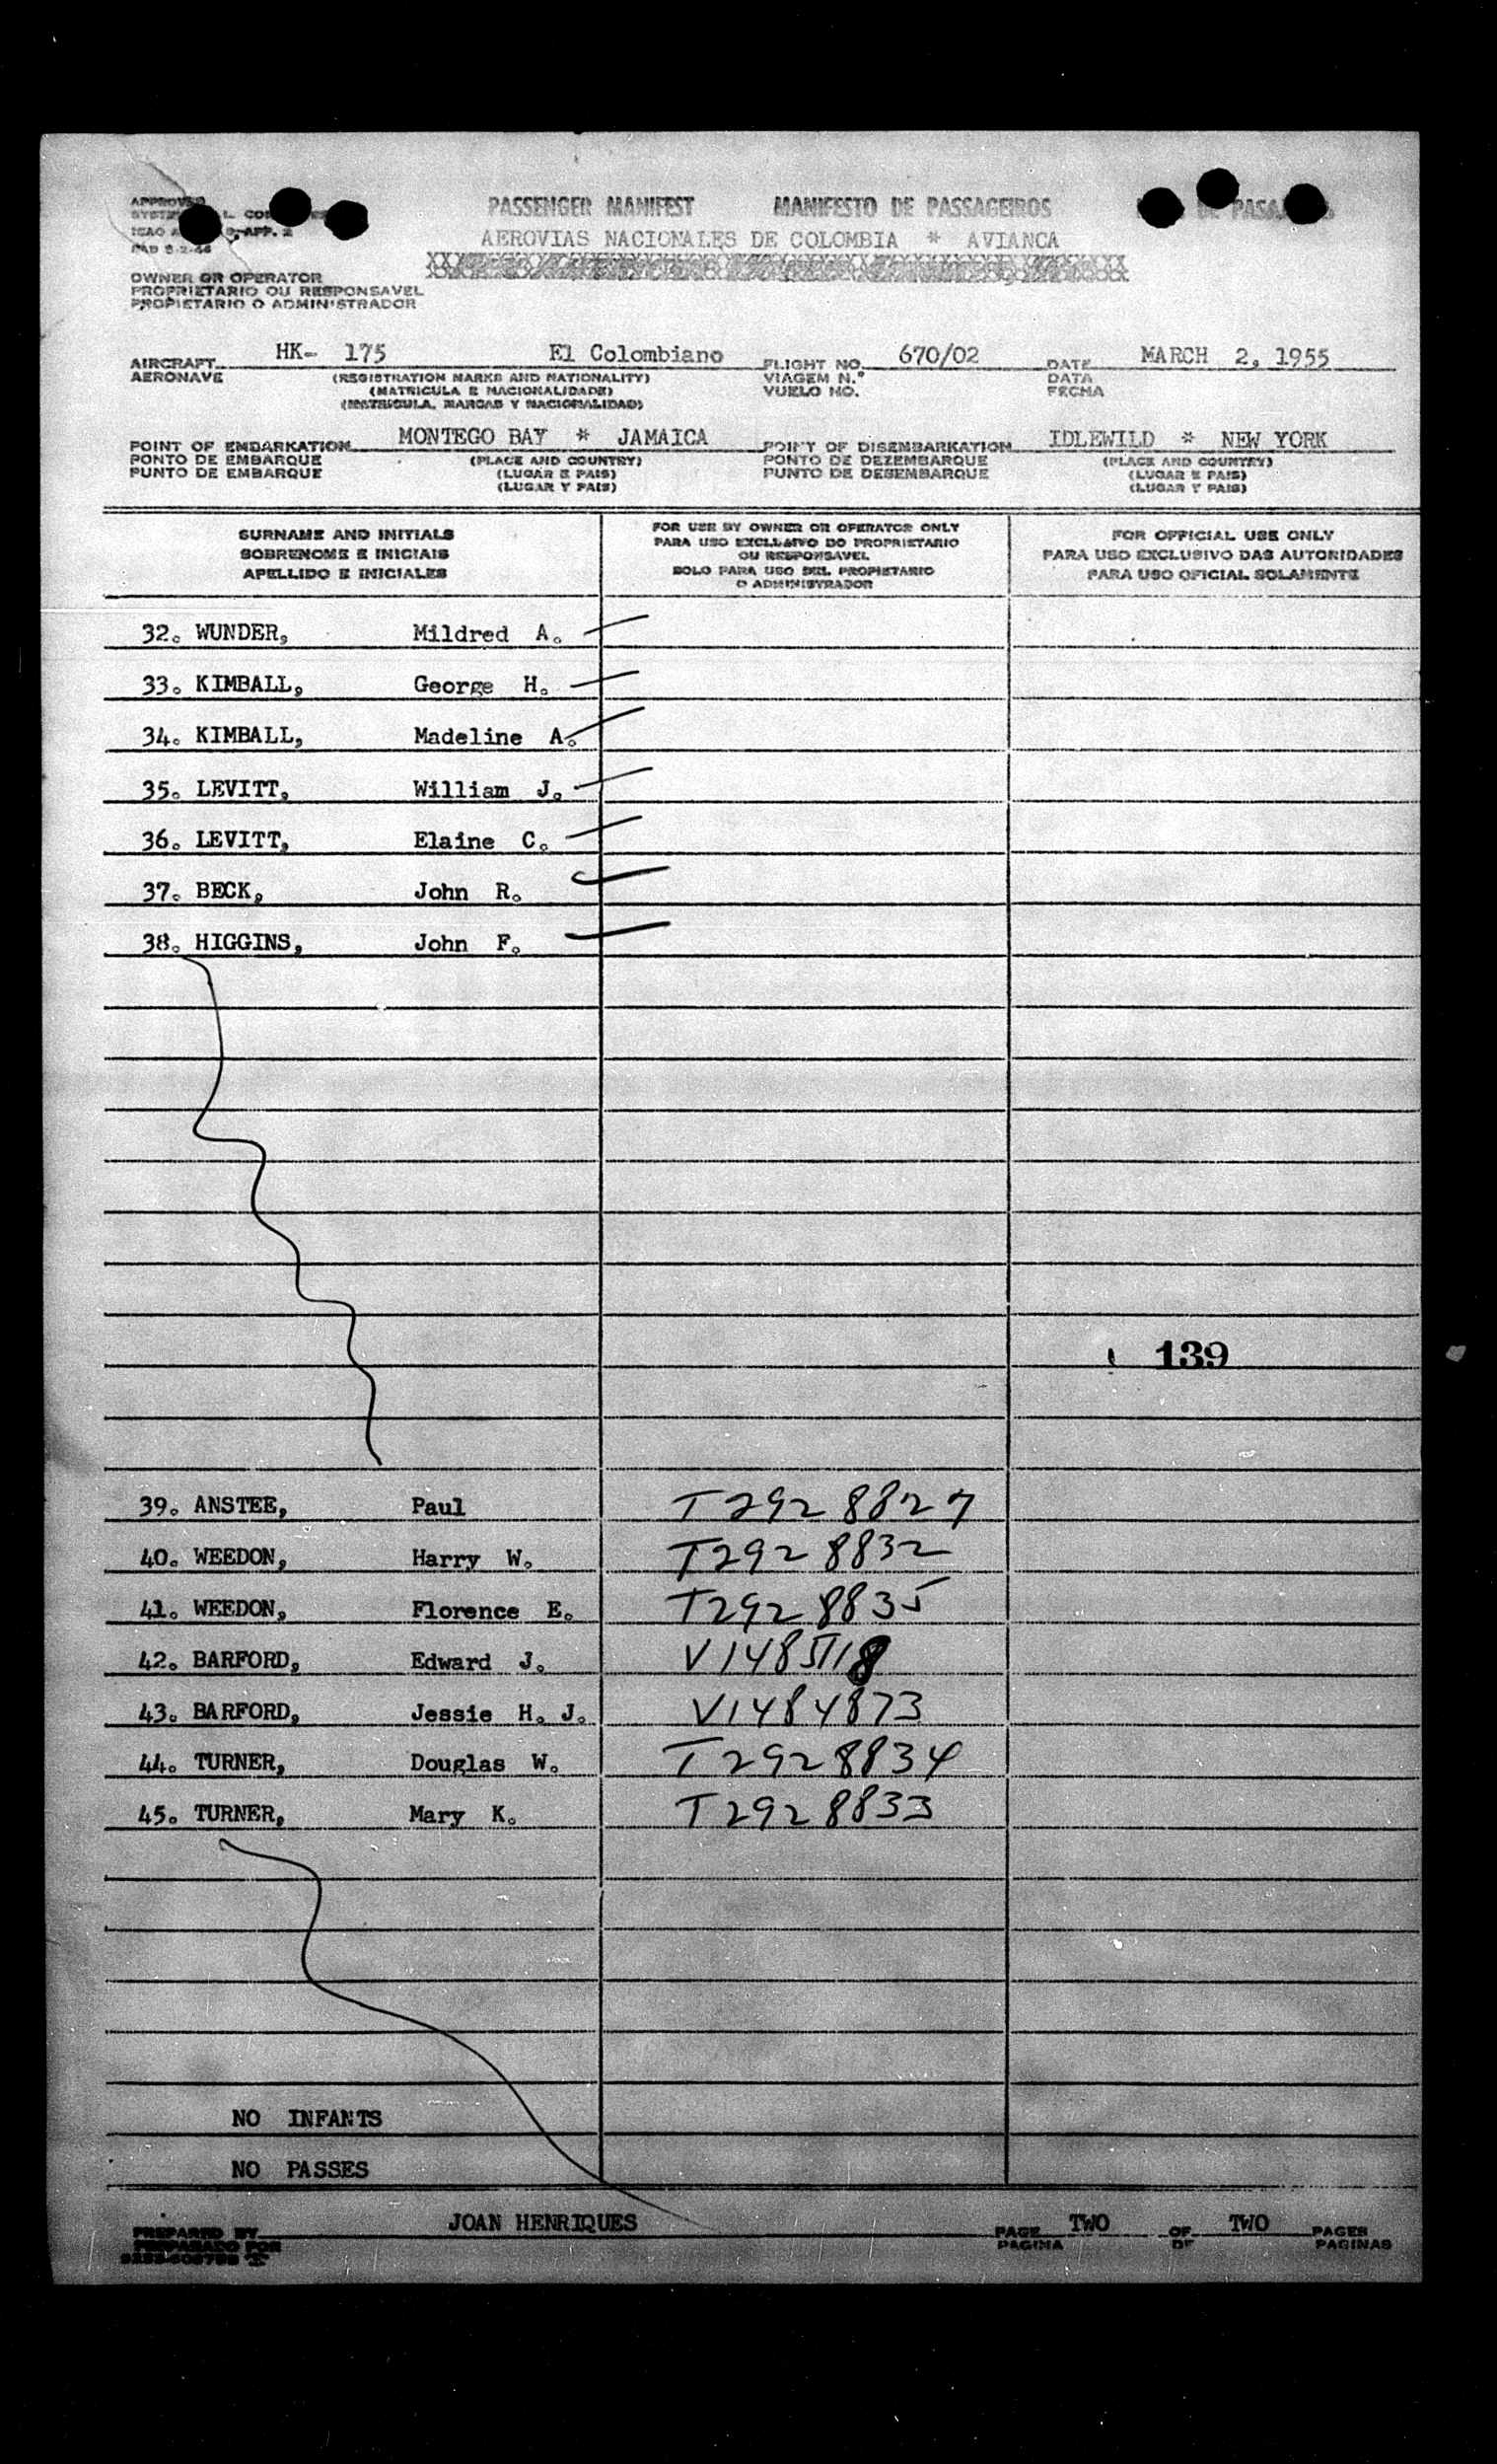 APPROVED
ICAO
PASSENGER MANIFEST MANIFESTO DE PASSAGEIROS DE PASA
AEROVIAS NACIONALES DE COLOMBIA * AVIANCA
OWNER OR OPERATOR
PROPRIETARIO OU RESPONSAVEL
PROPIETARIO O ADMINISTRADOR
AIRCRAFT HK- 175 El Colombiano FLIGHT NO. 670/02 DATE MARCH 2, 1955
AERONAVE (REGISTRATION MARKS AND NATIONALITY) VIAGEM N.º DATA
(MATRICULA E NACIONALIDADE) VUELO NO. FECHA
(MATRICULA, MARCAS Y NACIONALIDAD)
POINT OF EMBARKATION MONTEGO BAY * JAMAICA POINT OF DISEMBARKATION IDLEWILD * NEW YORK
PONTO DE EMBARQUE (PLACE AND COUNTRY) PONTO DE DEZEMBARQUE (PLACE AND COUNTRY)
PUNTO DE EMBARQUE (LUGAR E PAIS) PUNTO DE DESEMBARQUE (LUGAR E PAIS)
(LUGAR Y PAIS) (LUGAR Y PAIS)
SURNAME AND INITIALS
SOBRENOME E INICIAIS
APELLIDO E INICIALES
FOR USE BY OWNER OR OPERATOR ONLY
PARA USO EXCLUSIVO DO PROPRIETARIO
OU RESPONSAVEL
SOLO PARA USO DEL PROPIETARIO
O ADMINISTRADOR
FOR OFFICIAL USE ONLY
PARA USO EXCLUSIVO DAS AUTORIDADES
PARA USO OFICIAL SOLAMENTE
32. WUNDER, Mildred A.
33. KIMBALL, George H.
34. KIMBALL, Madeline A.
35. LEVITT, William J.
36. LEVITT, Elaine C.
37. BECK, John R.
38. HIGGINS, John F.
139
39. ANSTEE, Paul T2928827
40. WEEDON, Harry W. T2928832
41. WEEDON, Florence E. T2928835
42. BARFORD, Edward J. V1485118
43. BARFORD, Jessie H. J. V1484873
44. TURNER, Douglas W. T2928834
45. TURNER, Mary K. T2928833
NO INFANTS
NO PASSES
PREPARED BY JOAN HENRIQUES PAGE TWO OF TWO PAGES
PREPARADO POR PAGINA DE PAGINAS